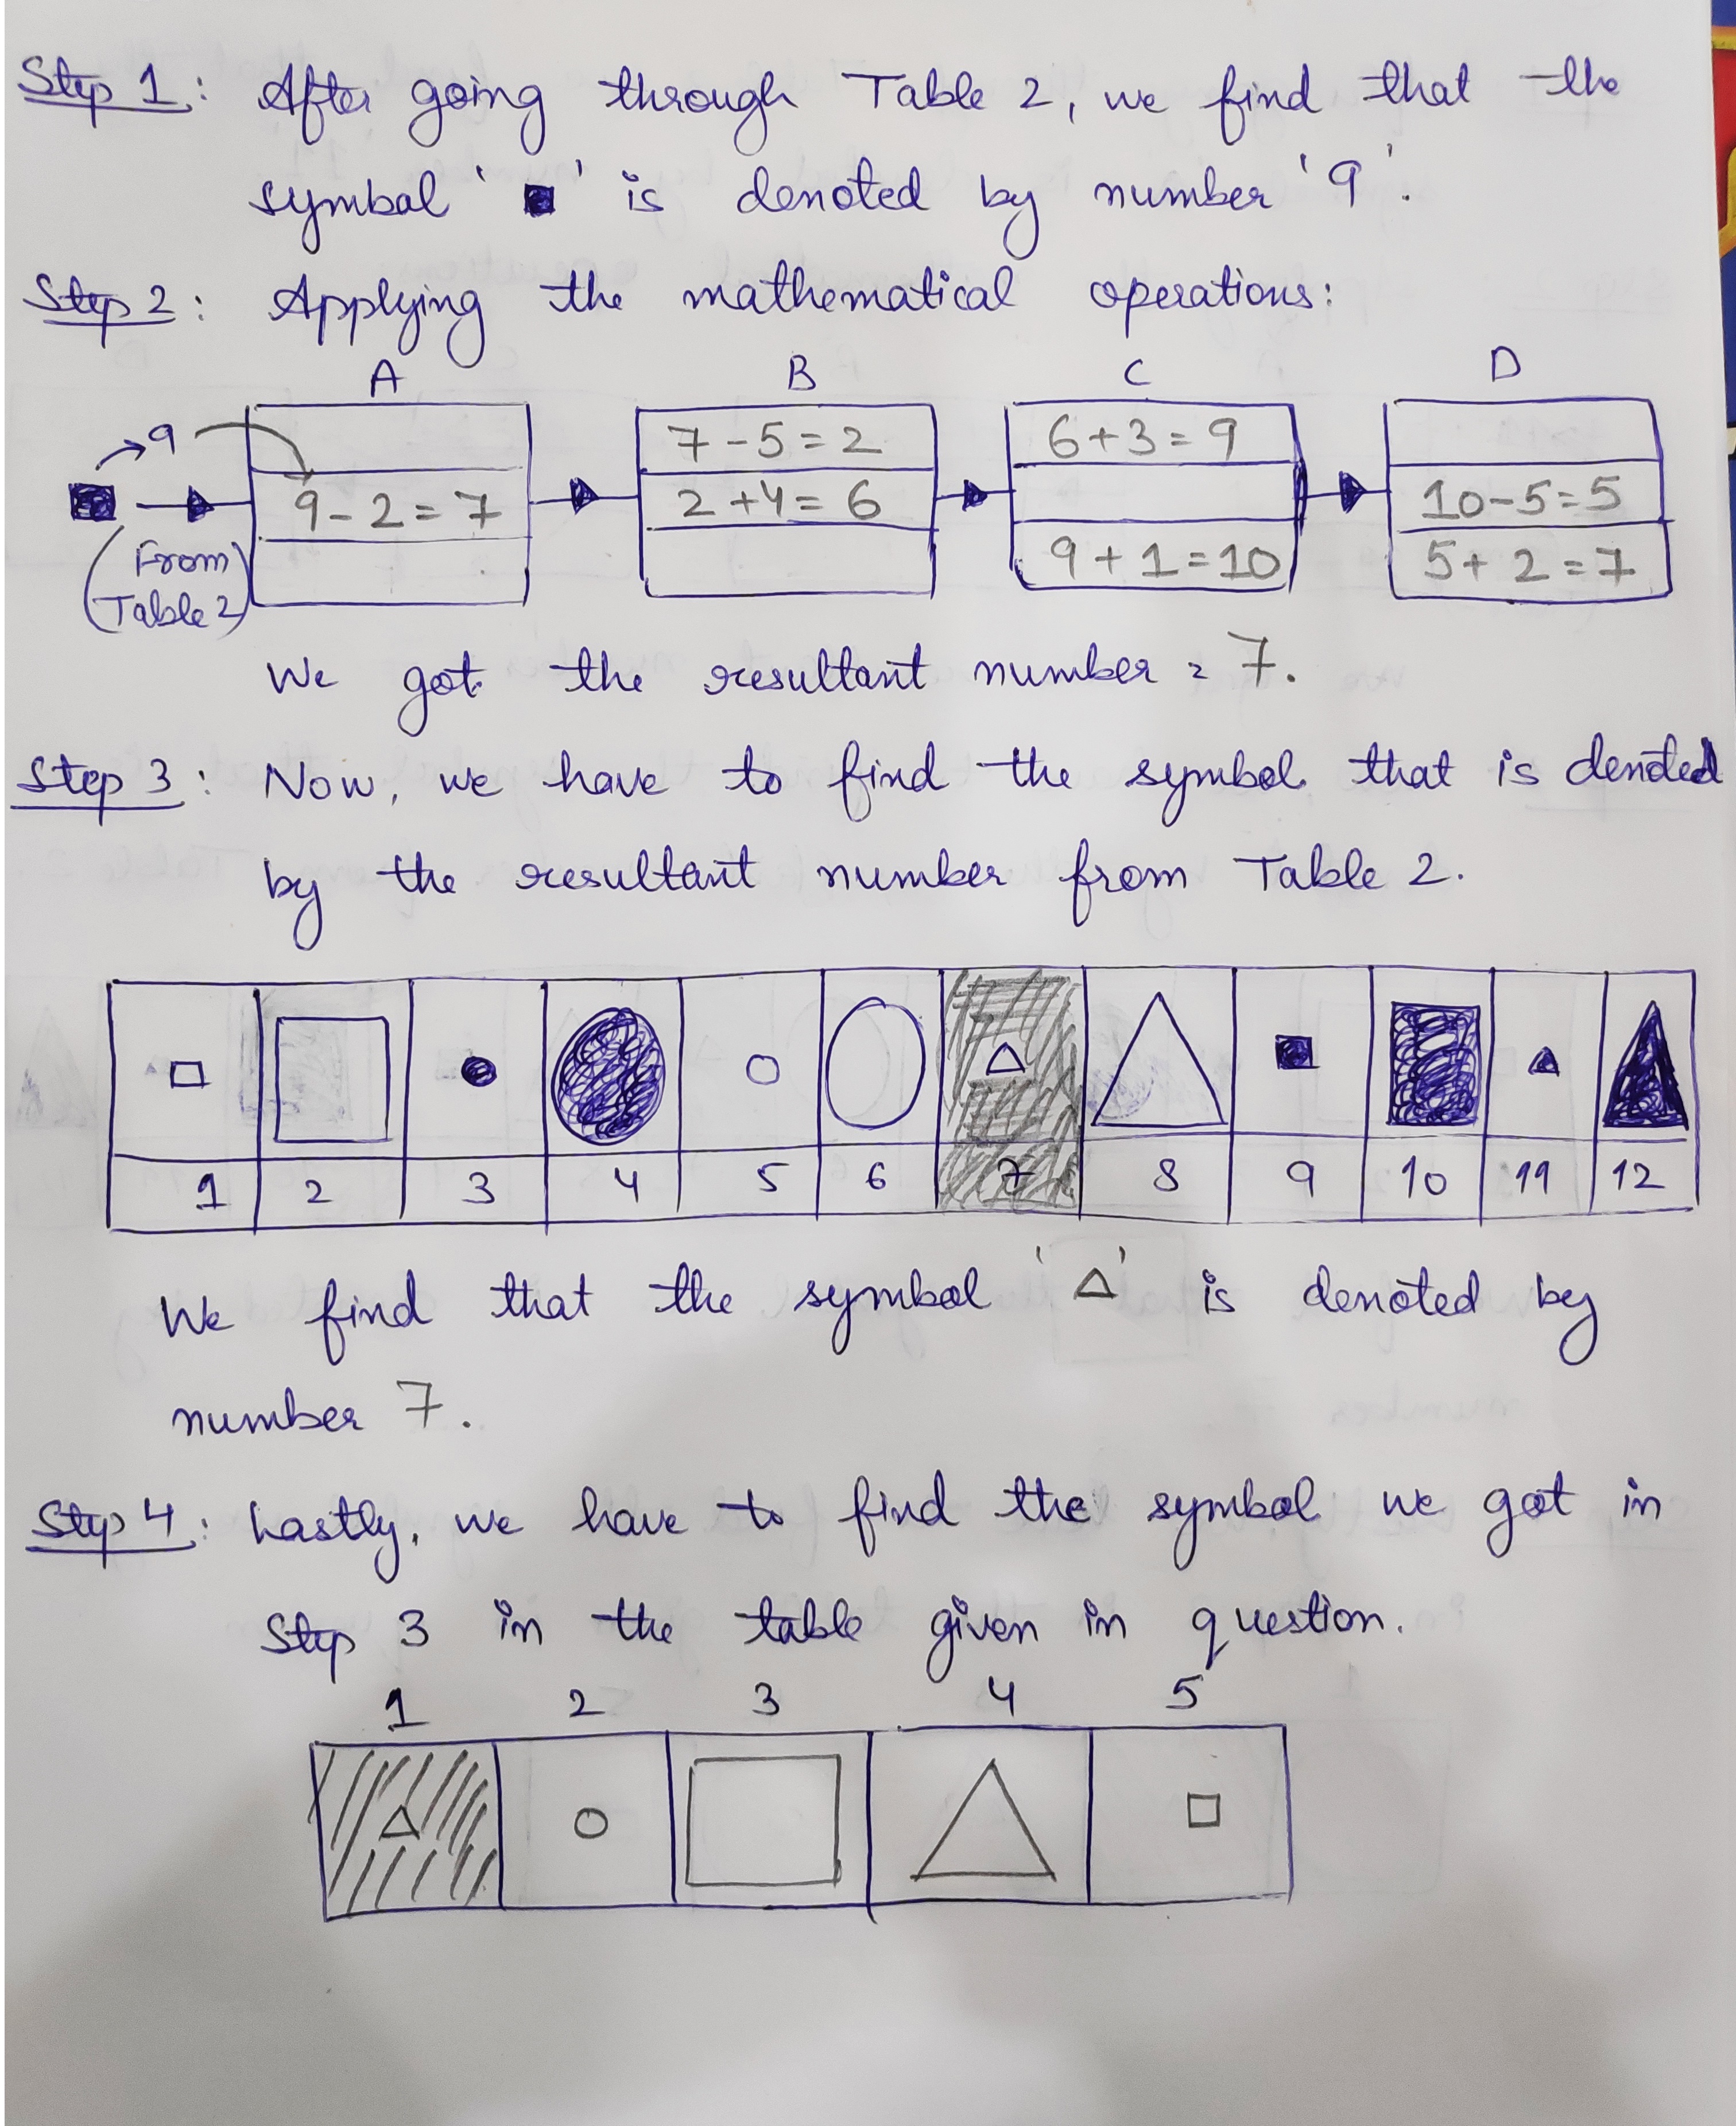 Step 1: After going through Table 2, we find that the
symbol '■' is denoted by number '9'.
Step 2: Applying the mathematical operations:
A B C D
9
7-5=2 6+3=9
9-2=7 2+4=6 10-5=5
(From 9+1=10 5+2=7
Table 2)
We got the resultant number = 7.
Step 3: Now, we have to find the symbol that is denoted
by the resultant number from Table 2.
1 2 3 4 5 6 7 8 9 10 11 12
We find that the symbol '△' is denoted by
number 7.
Step 4: Lastly, we have to find the symbol we got in
Step 3 in the table given in question.
1 2 3 4 5